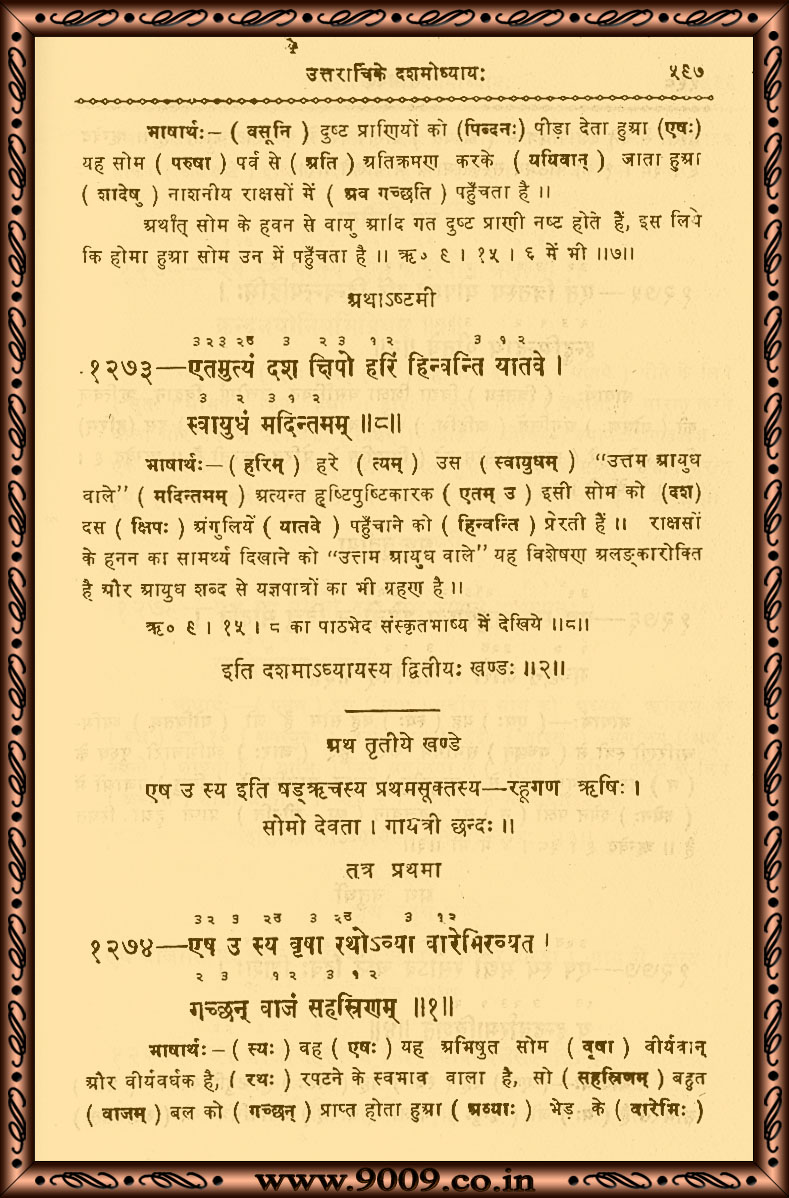 उत्तरार्चिके दशमोध्यायः ५९७
भाषार्थः— ( वसूनि ) दुष्ट प्राणियों को (पिब्दनः) पीड़ा देता हुआ (एषः)
यह सोम ( परुषा ) पर्व से ( अति ) अतिक्रमण करके ( ययिवान् ) जाता हुआ
( शादेषु ) नाशनीय राक्षसों में ( अव गच्छति ) पहुँचता है ॥
अर्थात् सोम के हवन से वायु आदि गत दुष्ट प्राणी नष्ट होते हैं, इस लिये
कि होमा हुआ सोम उन में पहुँचता है ॥ ऋ० ९ । १५ । ६ में भी ॥७॥
अथाऽष्टमी
३ २ ३ २उ ३ २ ३ १ २ ३ १ २
१२७३—एतमुत्यं दश क्षिपो हरिं हिन्वन्ति यातवे ।
३ २ ३ १ २
स्वायुधं मदिन्तमम् ॥८॥
भाषार्थः— ( हरिम् ) हरे ( त्यम् ) उस ( स्वायुधम् ) “उत्तम आयुध
वाले” ( मदिन्तमम् ) अत्यन्त हृष्टिपुष्टिकारक ( एतम् उ ) इसी सोम को (दश)
दस ( क्षिपः ) अंगुलियें ( यातवे ) पहुँचाने को ( हिन्वन्ति ) प्रेरती हैं ॥ राक्षसों
के हनन का सामर्थ्य दिखाने को “उत्तम आयुध वाले” यह विशेषण अलङ्कारोक्ति
है और आयुध शब्द से यज्ञपात्रों का भी ग्रहण है ॥
ऋ० ९ । १५ । ८ का पाठभेद संस्कृतभाष्य में देखिये ॥८॥
इति दशमाऽध्यायस्य द्वितीयः खण्डः ॥२॥
अथ तृतीये खण्डे
एष उ स्य इति षड्ऋचस्य प्रथमसूक्तस्य—रहूगण ऋषिः ।
सोमो देवता । गायत्री छन्दः ॥
तत्र प्रथमा
३ २ ३ २उ ३ २उ ३ १ २
१२७४—एष उ स्य वृषा रथोऽव्या वारेभिरव्यत ।
२ ३ १ २ ३ १ २
गच्छन् वाजं सहस्रिणम् ॥१॥
भाषार्थः— ( स्यः ) वह ( एषः ) यह अभिषुत सोम ( वृषा ) वीर्यवान्
और वीर्यवर्धक है, ( रथः ) रपटने के स्वभाव वाला है, सो ( सहस्रिणम् ) बहुत
( वाजम् ) बल को ( गच्छन् ) प्राप्त होता हुआ ( अव्याः ) भेड़ के ( वारेभिः )
www.9009.co.in